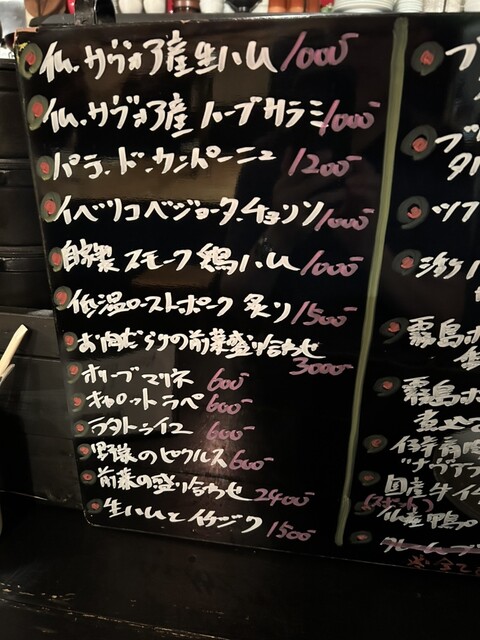 仏.サヴォア産生ハム 1000-
仏.サヴォア産 ハーブサラミ 1000-
パテ.ド.カンパーニュ 1200-
イベリコベジョータ.チョリソ 1000-
自家製 スモーク鶏ハム 1000-
低温ローストポーク 炙り 1500-
お肉だらけの前菜盛り合わせ
3000-
オリーブマリネ 600-
キャロットラペ 600-
ラタトゥイユ 600-
野菜のピクルス 600-
前菜の盛り合わせ 2400-
生ハムとイチジク 1500-
ブ
ブ
タル
ツブ
霧島ポ
霧島ポ
煮込
仔羊肩肉
国産牛イ
仏産鴨